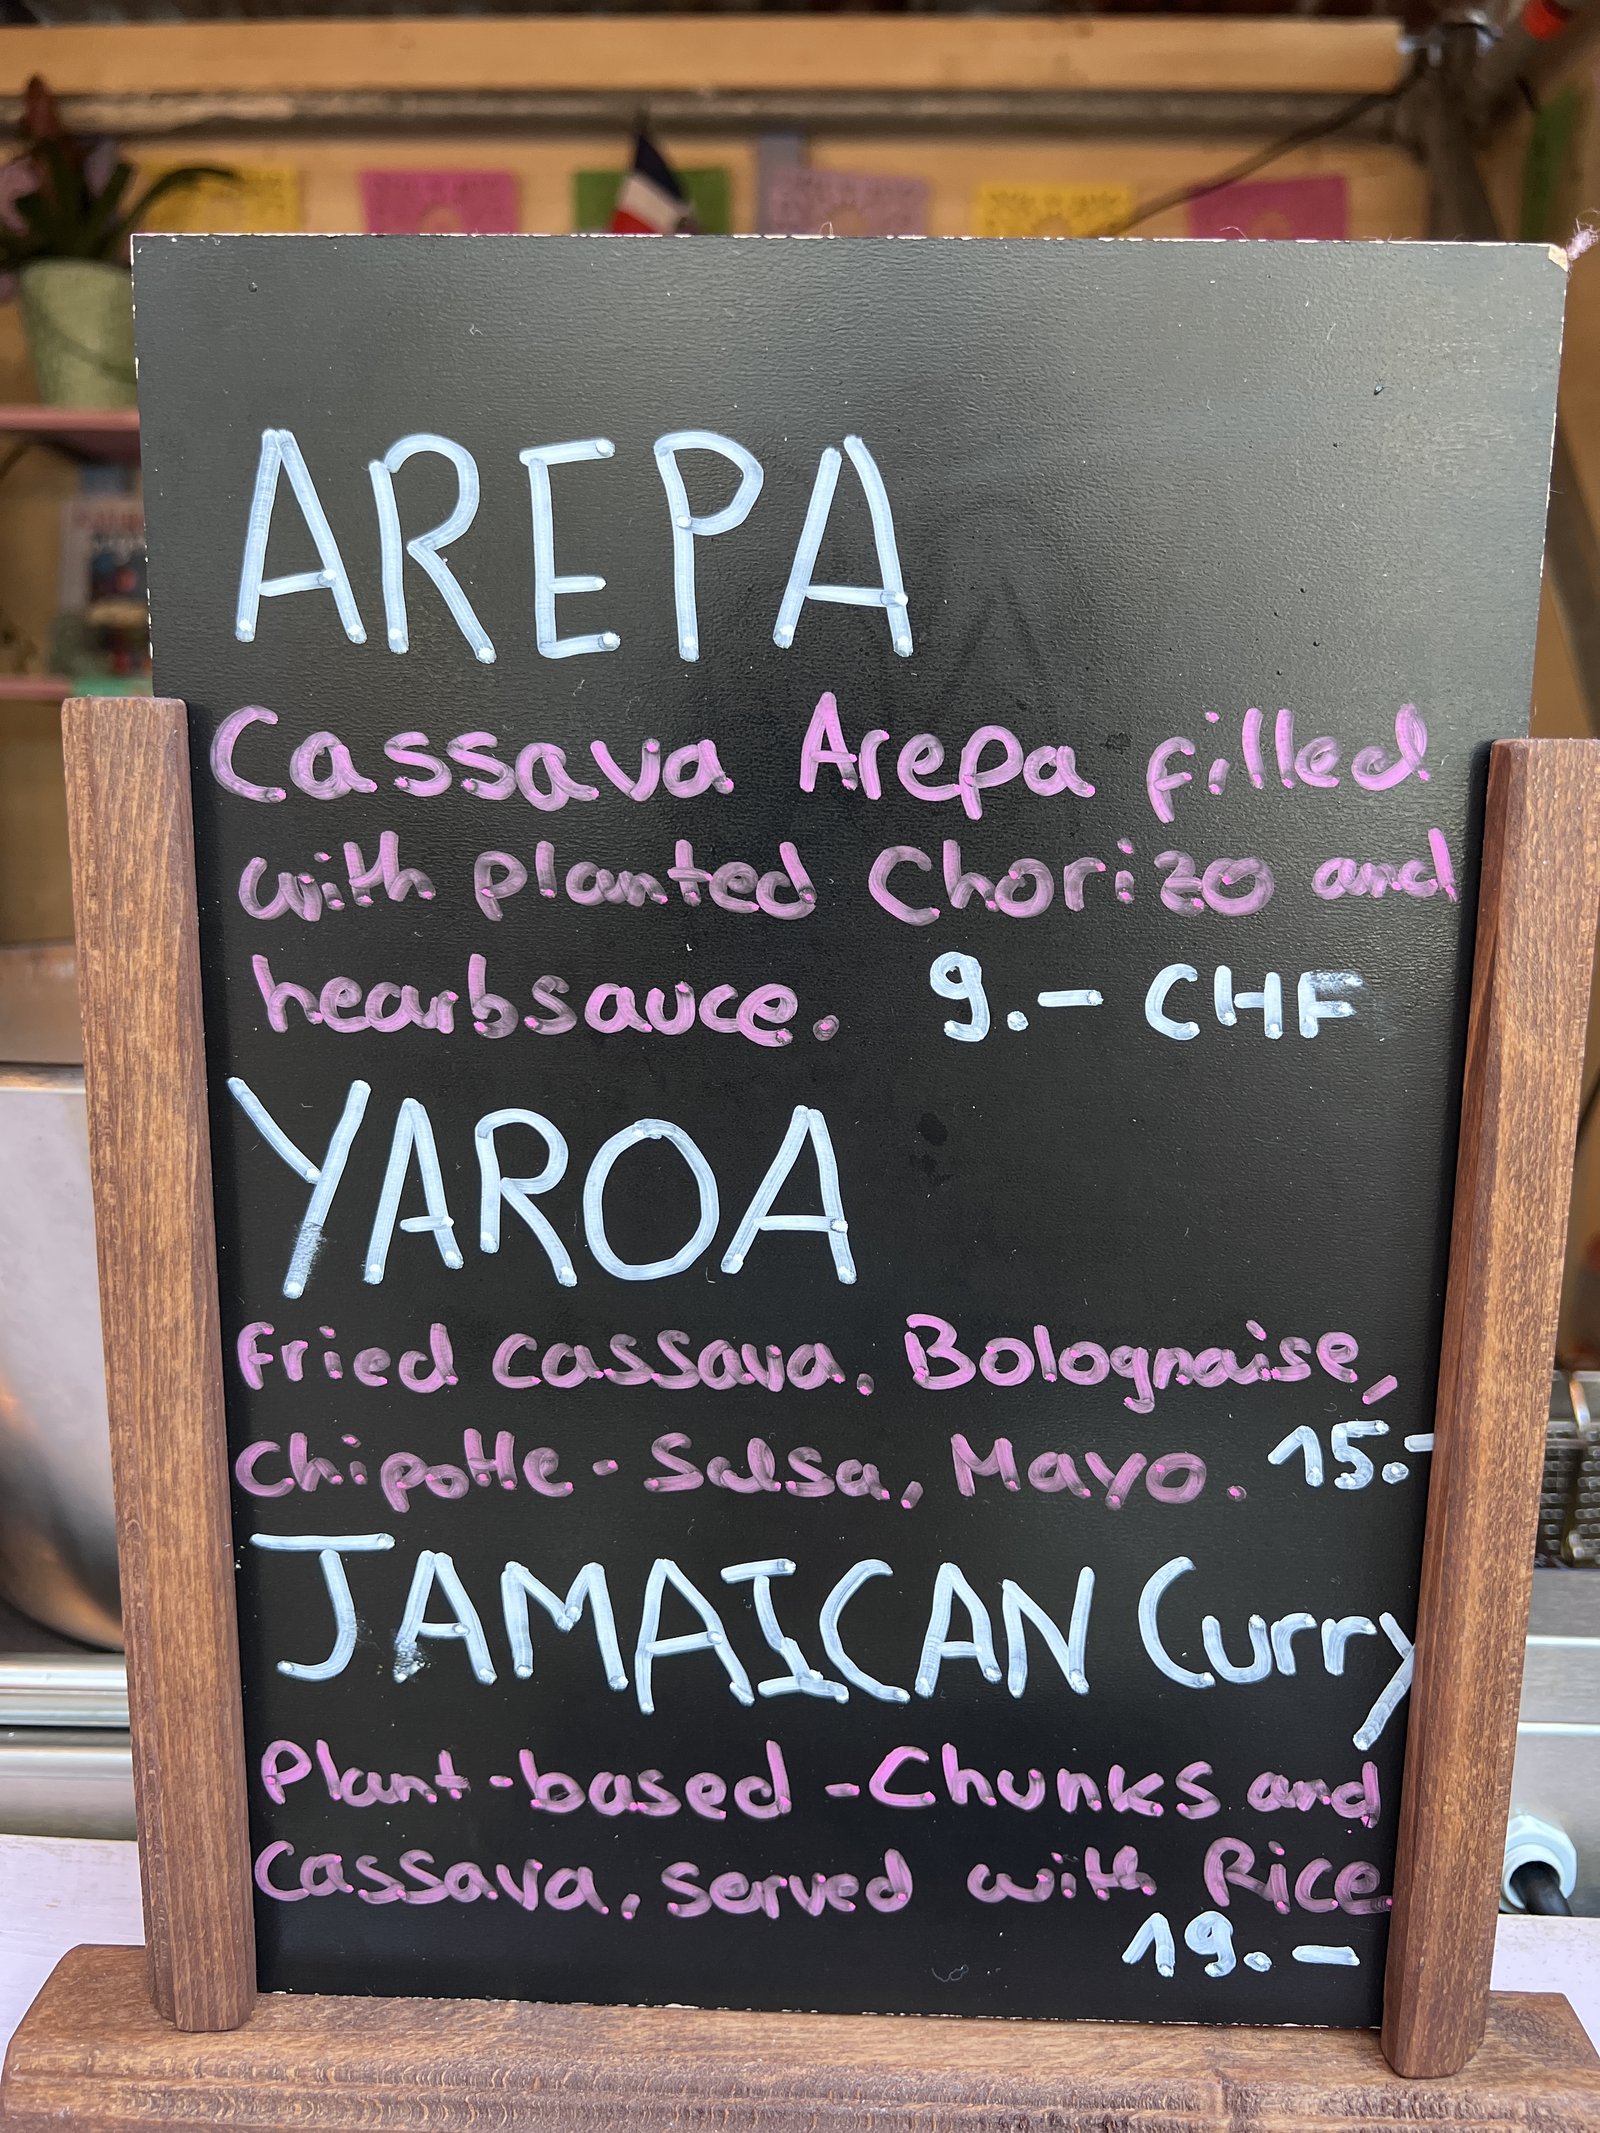 AREPA
Cassava Arepa filled
with planted Chorizo and
hearbsauce. 9.- CHF
YAROA
Fried cassava, Bolognaise,
Chipotle-Salsa, Mayo. 15.-
JAMAICAN Curry
Plant-based-Chunks and
Cassava, served with Rice
19.-